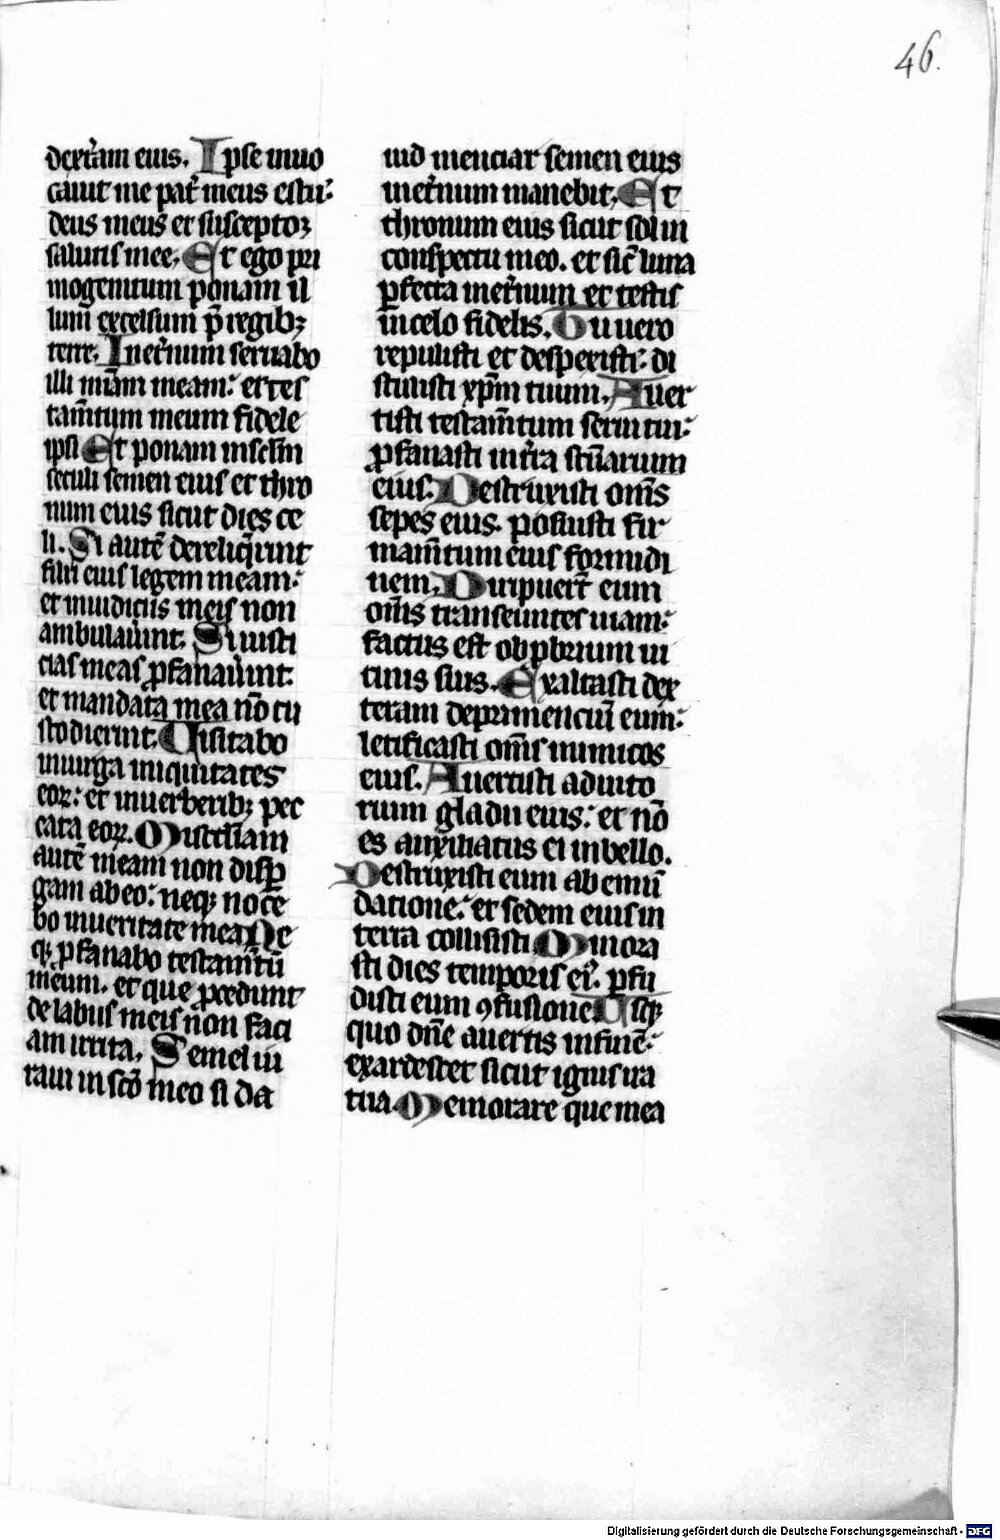 46.
dext̾am eius. Ipse inuo
cauit me pat̾ meus es tu:
deus meus et susceptoꝝ
salutis mee. Et ego pri
mogenitum ponam il
lum excelsum p̄ regibꝫ
terre. In et̾num seruabo
illi mīam meam: et tes
tam̄tum meum fidele
ipsi Et ponam in sc̄lm
seculi semen eius et thro
num eius sicut dies ce
li. Si autē dereliq̄rint
filii eius legem meam:
et in iudiciis meis non
ambulau̾int. Si iusti
cias meas ꝓfanau̾int:
et mandata mea nō cu
stodierint. Uisitabo
in uirga iniquitates
eoꝝ: et in uerberibꝫ pec
cata eoꝝ. Misc̄diam
autē meam non disꝑ
gam ab eo: neqꝫ noce
bo in ueritate mea Ne
qꝫ ꝓfanabo testam̄tū
meum. et que ꝓcedunt
de labiis meis non faci
am irrita. Semel iu
raui in scō meo si da
uid menciar semen eius
in et̾num manebit. Et
thronum eius sicut sol in
conspectu meo. et sic̄ luna
ꝑfecta in et̾num et testis
in celo fidelis. Tu uero
repulisti et despexisti: di
stulisti xp̄m tuum. Auer
tisti testam̄tum serui tui:
ꝓfanasti in t̾ra sc̄uarium
eius. Destruxisti om̄s
sepes eius. posuisti fir
mam̄tum eius formidi
nem. Diripuer̄t eum
om̄s transeuntes uiam:
factus est obꝓbrium ui
cinis suis. Exaltasti dex
teram deprimenciū eum:
letificasti om̄s inimicos
eius. Auertisti adiuto
rium gladii eius: et nō
es auxiliatus ei in bello.
Destruxisti eum ab emū
datione: et sedem eius in
terra collisisti Minora
sti dies temporis ei᷒. ꝑfu
disti eum ꝯfusione Usqꝫ
quo dn̄e auertis in finē:
exardescet sicut ignis ira
tua. Memorare que mea
Digitalisierung gefördert durch die Deutsche Forschungsgemeinschaft - DFG